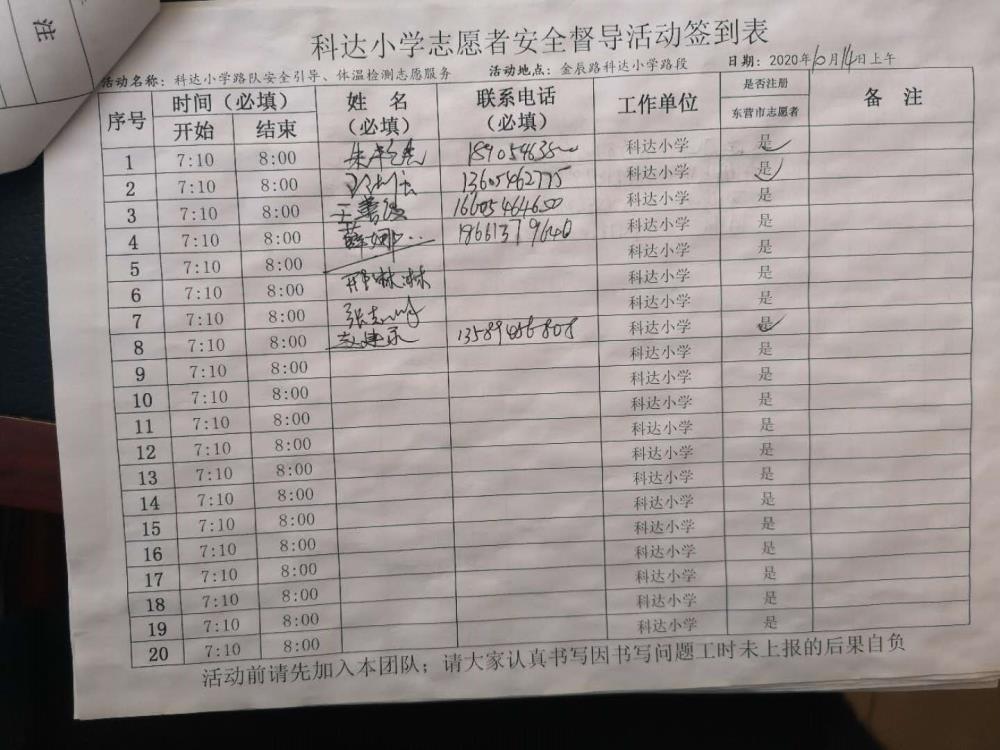 注
科达小学志愿者安全督导活动签到表
活动名称：科达小学路队安全引导、体温检测志愿服务 活动地点：金辰路科达小学路段 日期：2020年10月14日上午
序号 时间（必填） 姓 名（必填） 联系电话（必填） 工作单位 是否注册 备 注
开始 结束 东营市志愿者
1 7:10 8:00 科达小学 是
2 7:10 8:00 13605462775 科达小学 是
3 7:10 8:00 王善 16605464650 科达小学 是
4 7:10 8:00 薛娜 18661379640 科达小学 是
5 7:10 8:00 科达小学 是
6 7:10 8:00 邢琳琳 科达小学 是
7 7:10 8:00 张志 科达小学 是
8 7:10 8:00 13589456808 科达小学 是
9 7:10 8:00 科达小学 是
10 7:10 8:00 科达小学 是
11 7:10 8:00 科达小学 是
12 7:10 8:00 科达小学 是
13 7:10 8:00 科达小学 是
14 7:10 8:00 科达小学 是
15 7:10 8:00 科达小学 是
16 7:10 8:00 科达小学 是
17 7:10 8:00 科达小学 是
18 7:10 8:00 科达小学 是
19 7:10 8:00 科达小学 是
20 7:10 8:00
活动前请先加入本团队；请大家认真书写因书写问题工时未上报的后果自负